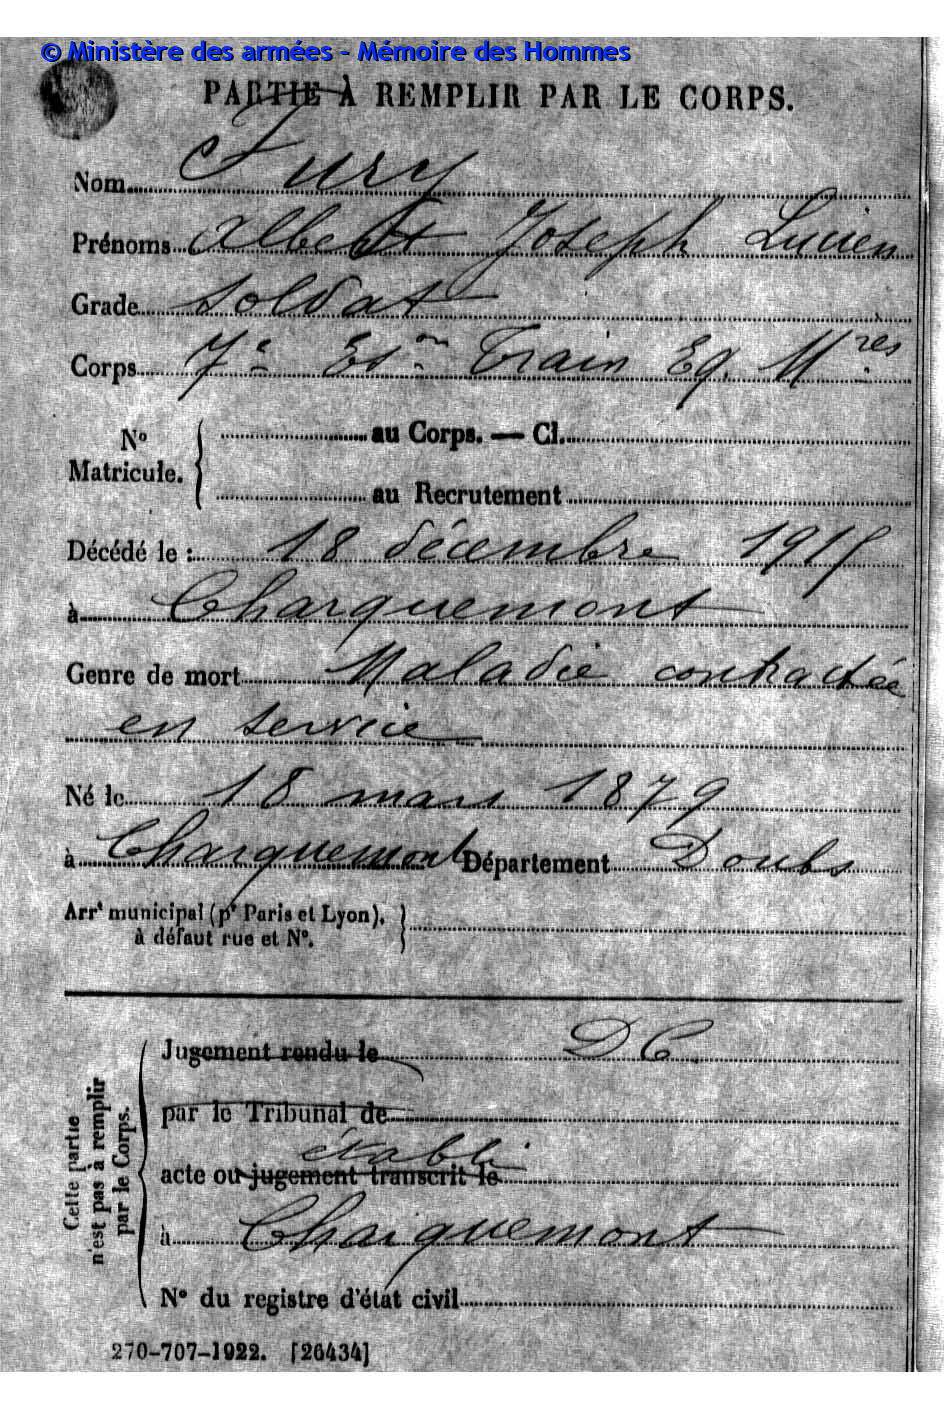 © Ministère des armées - Mémoire des Hommes
PARTIE À REMPLIR PAR LE CORPS.
Nom Jury
Prénoms Albert Joseph Lucien
Grade soldat
Corps 7e Eson Train Eq. Mres
No Matricule. { au Corps. — Cl.
au Recrutement
Décédé le : 18 décembre 1915
à Charquemont
Genre de mort Maladie contractée
en service
Né le 18 mars 1879
à Charquemont Département Doubs
Arrt municipal (pr Paris et Lyon),
à défaut rue et No.
Cette partie
n'est pas à remplir
par le Corps.
Jugement rendu le DC
par le Tribunal de
établi
acte ou jugement transcrit le
à Charquemont
No du registre d'état civil
270-707-1922. [26434]